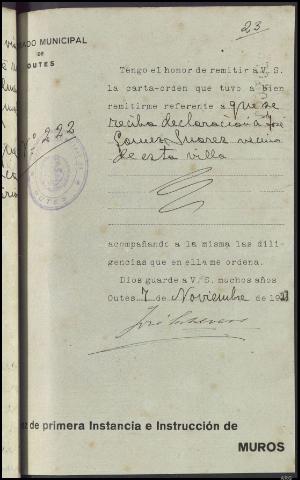 23
ADO MUNICIPAL
DE
OUTES
Nº 222
OUTES
Tengo el honor de remitir a V. S.
la carta-orden que tuvo a bien
remitirme referente a que se
reciba declaración á José
Gomez Suarez vecino
de esta villa
acompañando a la misma las dili-
gencias que en ella me ordena.
Dios guarde a V. S. muchos años
Outes 7 de Noviembre de 19
José
ez de primera Instancia e Instrucción de
MUROS